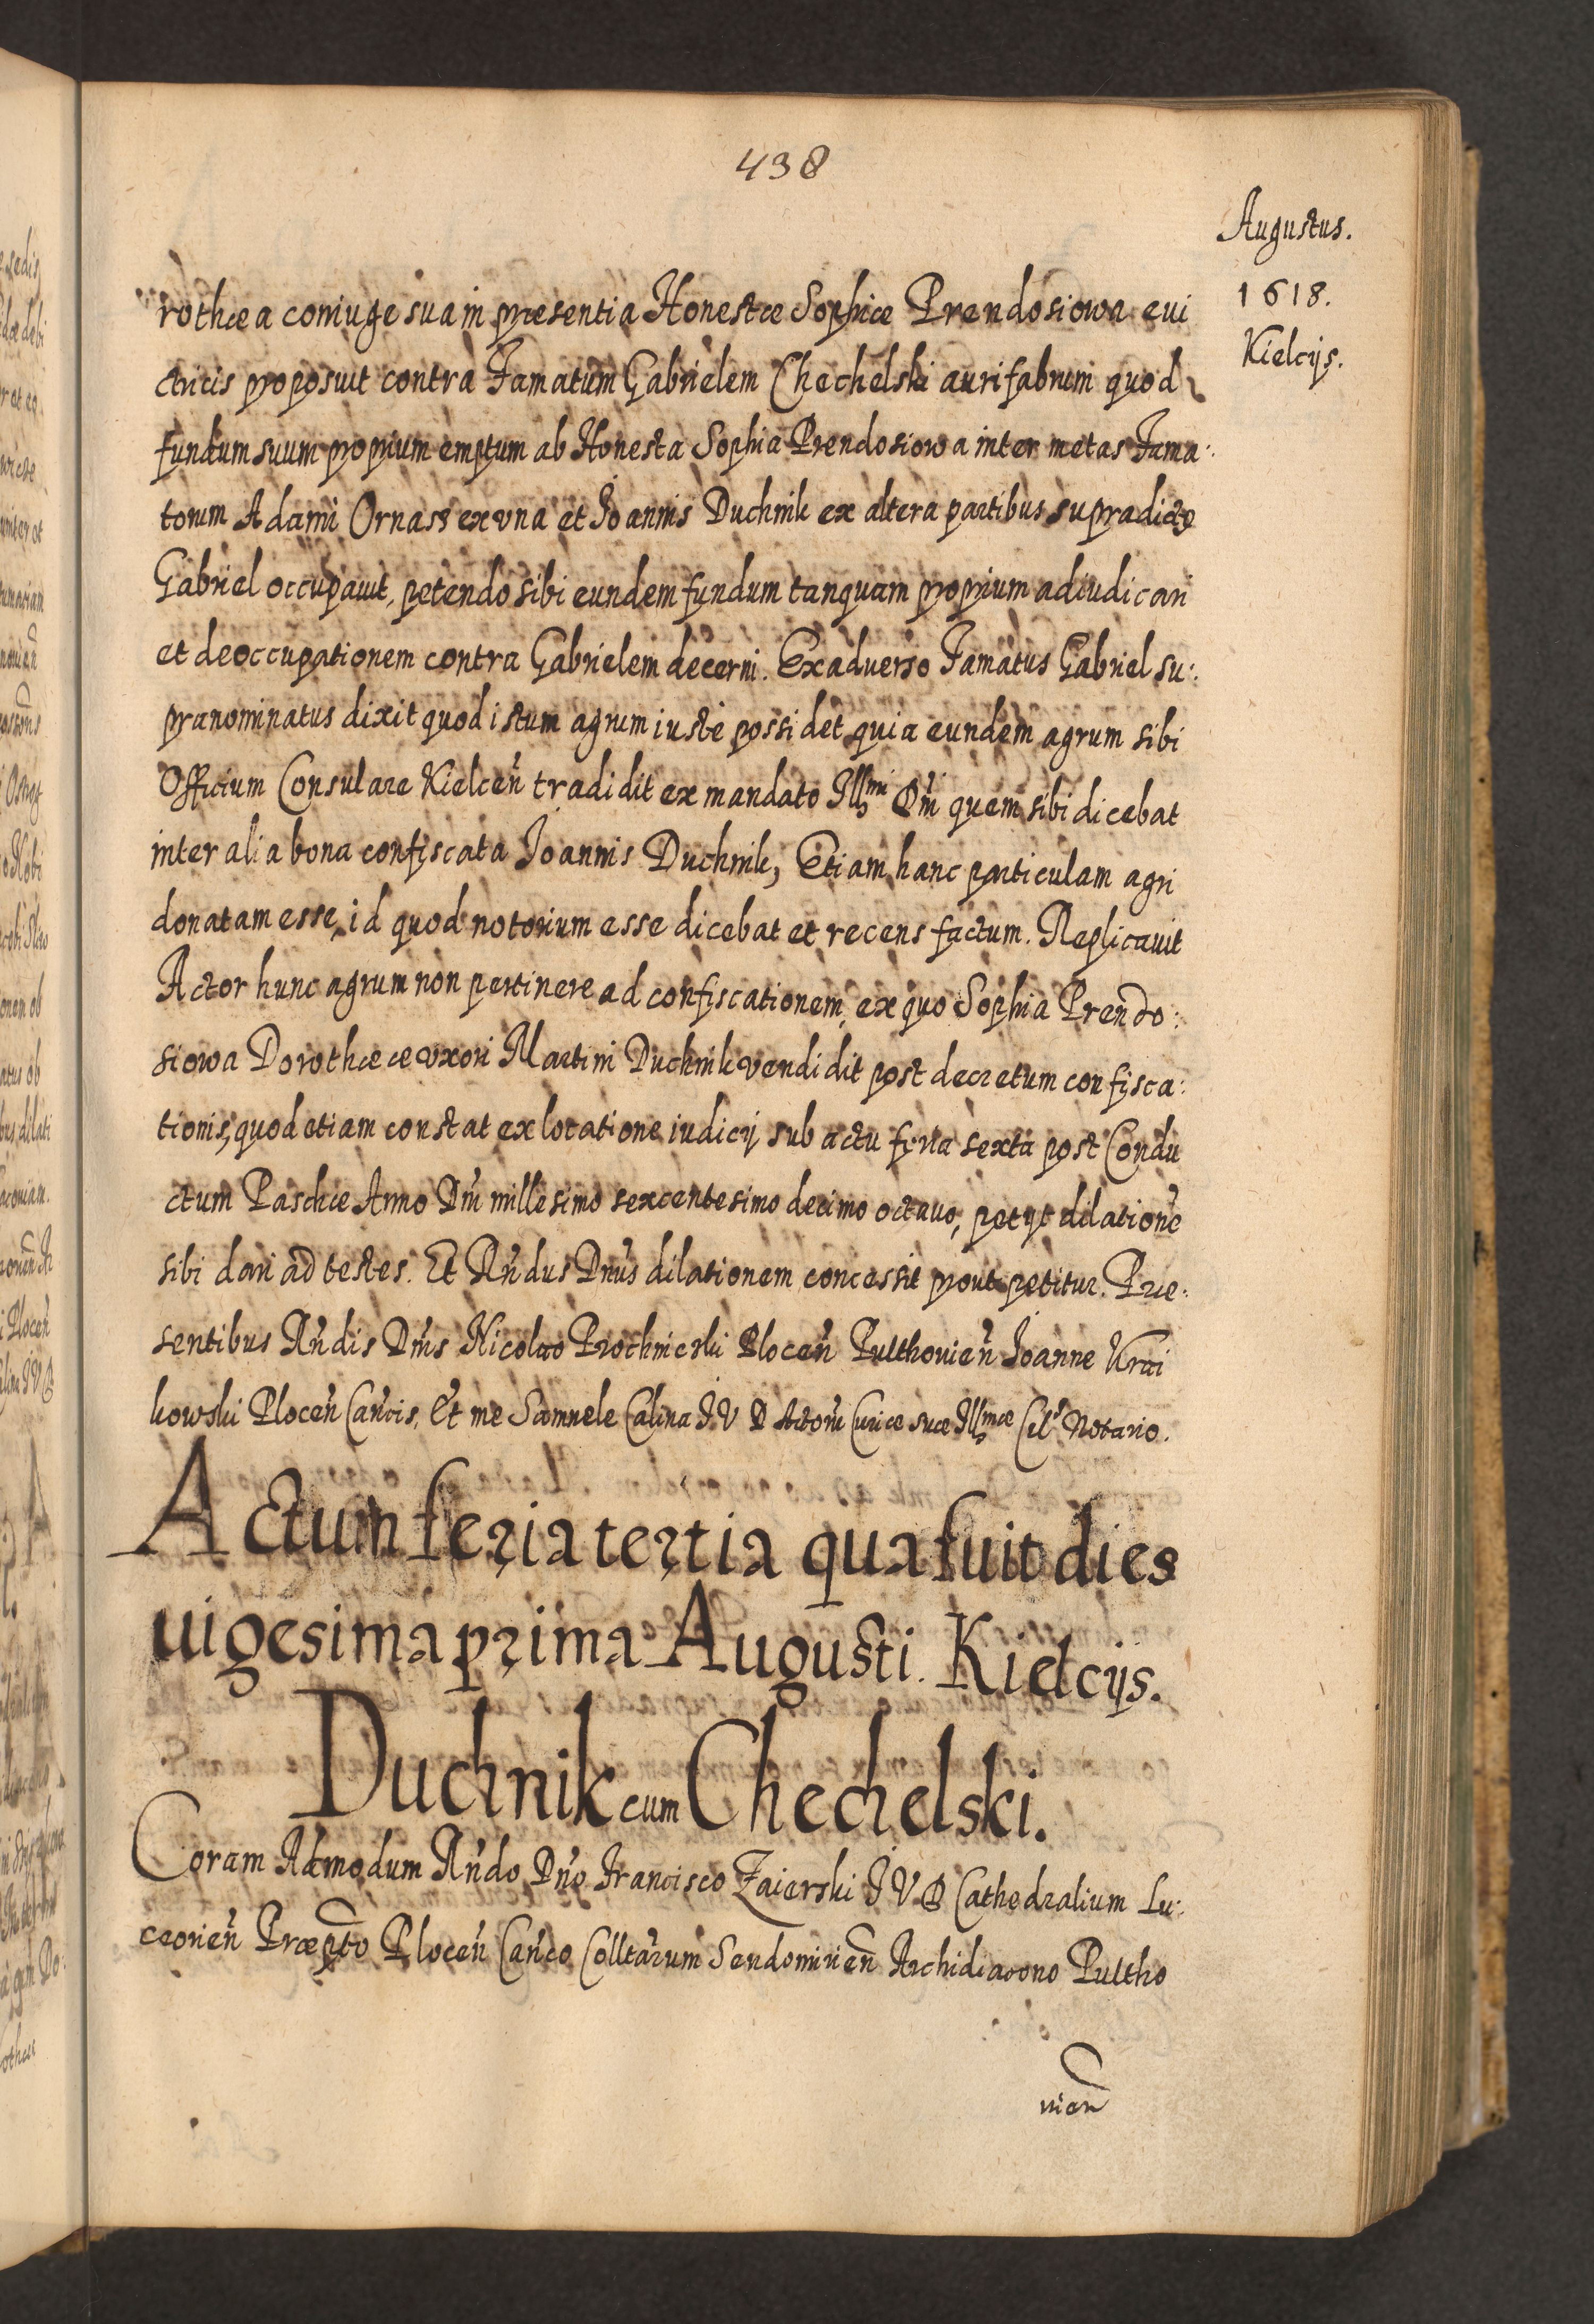 438
Augustus.
1618.
Kielcijs.
rothæa coniuge sua in præsentia Honestæ Sophiæ Prendosiowa eui
ctricis proposuit contra Famatum Gabrielem Chechelski aurifabrum quod
fundum suum proprium emptum ab Honesta Sophia Prendosiowa inter metas Fama:
torum Adami Ornass ex vna et Ioannis Duchnik ex altera partibus supradicto
Gabriel occupauit, petendo sibi eundem fundum tanquam proprium adiudicari
et deoccupationem contra Gabrielem decerni. Ex aduerso Famatus Gabriel su:
pranominatus dixit quod istum agrum iustè possidet quia eundem agrum sibi
Officium Consulare Kielceñ tradidit ex mandato Illmi Dñi quem sibi dicebat
inter alia bona confiscata Ioannis Duchnik, Etiam hanc particulam agri
donatam esse, id quod notorium esse dicebat et recens factum. Replicauit
Actor hunc agrum non pertinere ad confiscationem, ex quo Sophia Prendo:
siowa Dorothææ vxori Martini Duchnik vendidit post decretum confisca:
tionis, quod etiam constat ex locatione iudicij sub actu feria sexta post Condu
ctum Paschæ Anno Dñi millesimo sexcentesimo decimo octauo, petijt dilationē
sibi dari ad testes. Et Rñdus Dnus dilationem concessit prout petitur. Præ:
sentibus Rñdis Dñis Nicolao Prochnicski Ploceñ Pulthouieñ Ioanne Krai
kowski Ploceñ Cañcis, Et me Samuele Calina I V D Actorũ Curiæ suæ Illmæ Cels Notario.
Actum feria tertia qua fuit dies
uigesima prima Augusti. Kielcijs.
Duchnik cum Chechelski.
Coram Admodum Rñdo Dño Francisco Zaierski I V D Cathedralium Lu:
ceorieñ Præpto Ploceñ Cañco Colltarum Sendomirieñ Archidiacono Pultho
uien